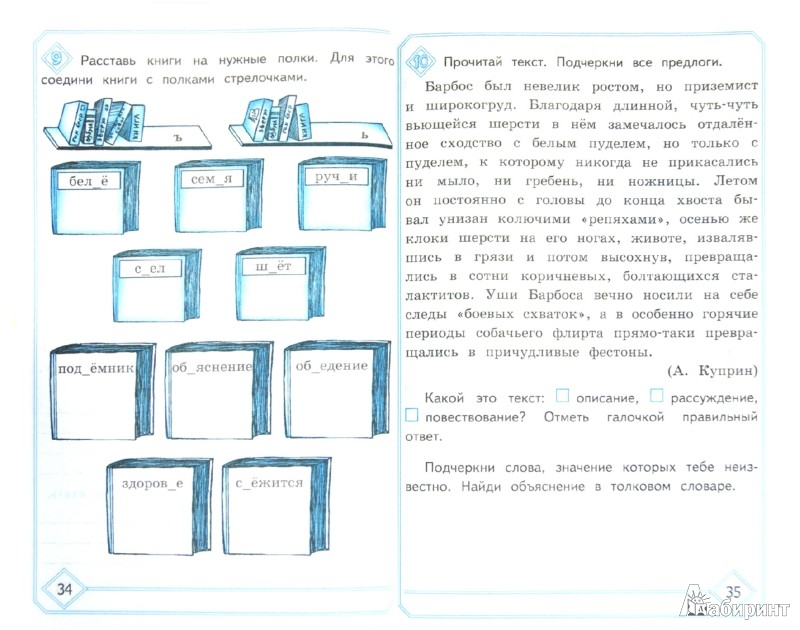 9 Расставь книги на нужные полки. Для этого
соедини книги с полками стрелочками.
КНИГА
ъ
ь
бел_ё
сем_я
руч_и
с_ел
ш_ёт
под_ёмник
об_яснение
об_едение
здоров_е
с_ёжится
34
10 Прочитай текст. Подчеркни все предлоги.
Барбос был невелик ростом, но приземист
и широкогруд. Благодаря длинной, чуть-чуть
вьющейся шерсти в нём замечалось отдалён-
ное сходство с белым пуделем, но только с
пуделем, к которому никогда не прикасались
ни мыло, ни гребень, ни ножницы. Летом
он постоянно с головы до конца хвоста бы-
вал унизан колючими «репяхами», осенью же
клоки шерсти на его ногах, животе, извалявш-
шись в грязи и потом высохнув, превраща-
лись в сотни коричневых, болтающихся ста-
лактитов. Уши Барбоса вечно носили на себе
следы «боевых схваток», а в особенно горячие
периоды собачьего флирта прямо-таки превра-
щались в причудливые фестоны.
(А. Куприн)
Какой это текст: описание, рассуждение,
повествование? Отметь галочкой правильный
ответ.
Подчеркни слова, значение которых тебе неиз-
вестно. Найди объяснение в толковом словаре.
35
Лабиринт